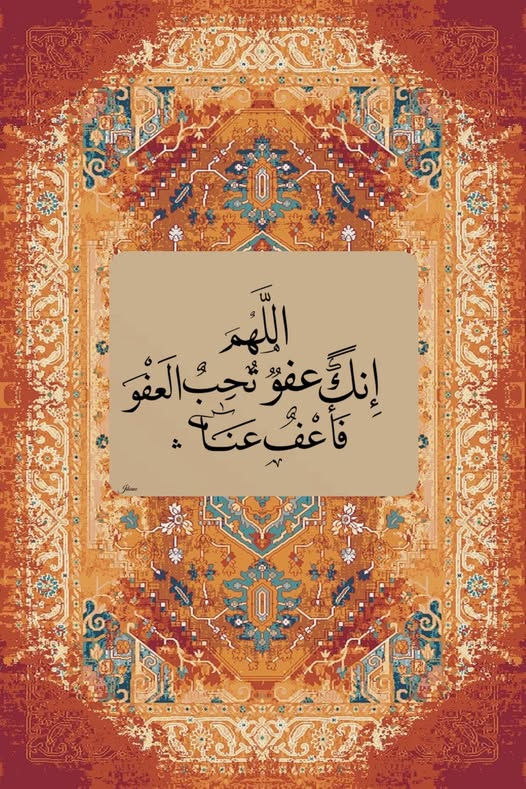 اللَّهُمَ
إِنكَ عفوٌ تُحِبُ العَفْوَ
فَأَعْفُ عَنَا